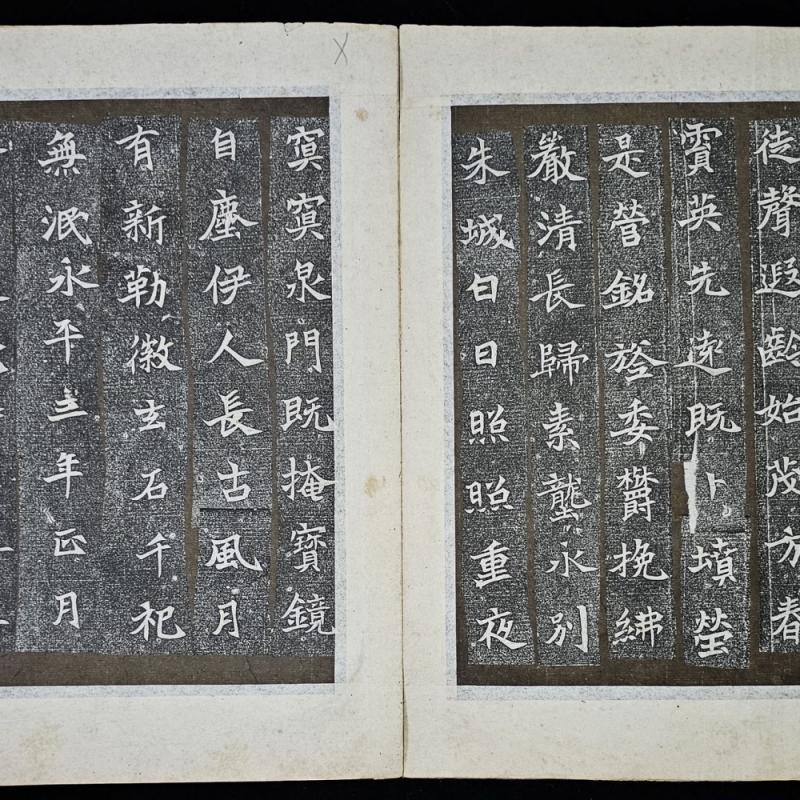 徒聲遐齡始茂方春
霣英先遠既卜墳塋
是營銘旍委欝挽紼
嚴清長歸素壟永別
朱城白日照照重夜
寞寞泉門既掩寶鏡
自塵伊人長古風月
有新勒徽玄石千祀
無泯永平三年正月